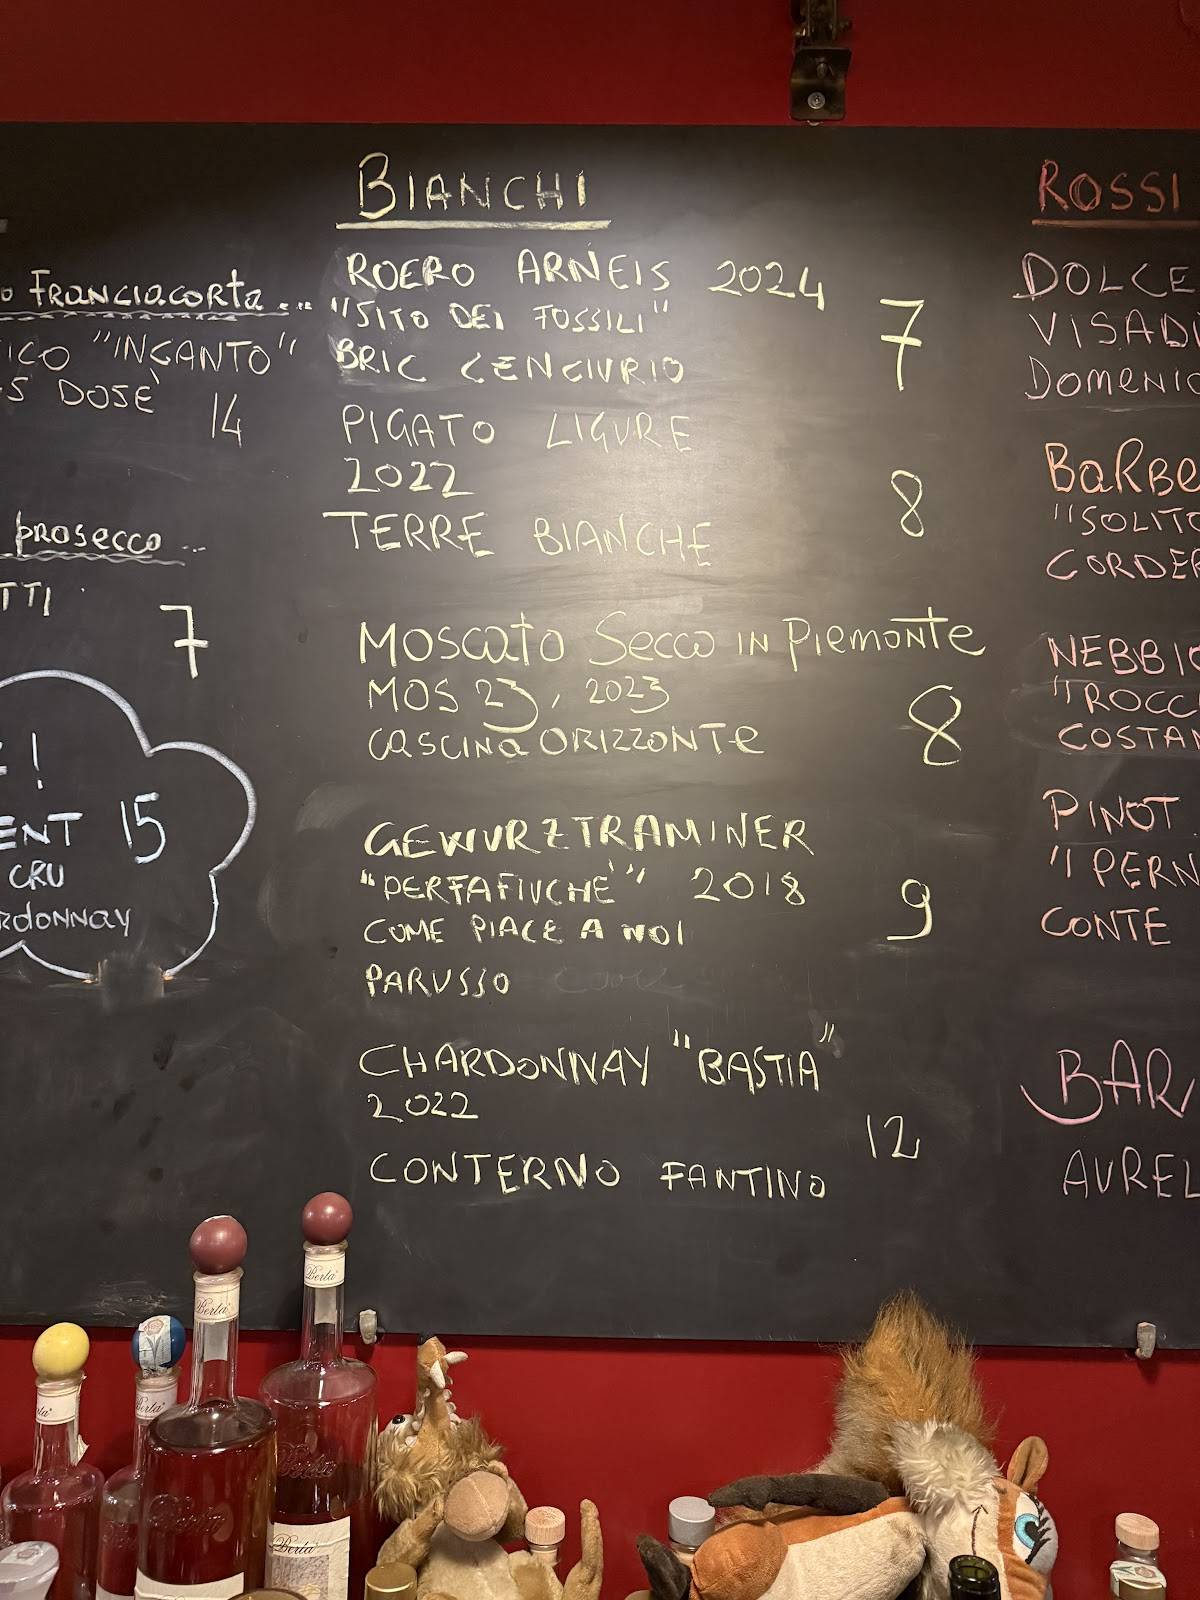 Franciacorta ...
"INCANTO"
DOSÈ
14
prosecco ...
7
!
15
CRU
BIANCHI
ROERO ARNEIS 2024
"SITO DEI FOSSILI"
7
BRIC CENCIURIO
PIGATO LIGURE
2022
8
TERRE BIANCHE
MOSCATO SECCO IN PIEMONTE
MOS 23, 2023
8
CASCINA ORIZZONTE
GEWURZTRAMINER
"PERFAFIUCHÈ" 2018
9
COME PIACE A NOI
PARUSSO
CHARDONNAY "BASTIA"
2022
12
CONTERNO FANTINO
ROSSI
DOLCE
VISADI
DOMENIC
BARBE
"SOLITO
CORDER
NEBBIO
"ROCC
COSTAN
PINOT
"I PERN
CONTE
BAR
AUREL
Berta
Berta
Berta
Berta